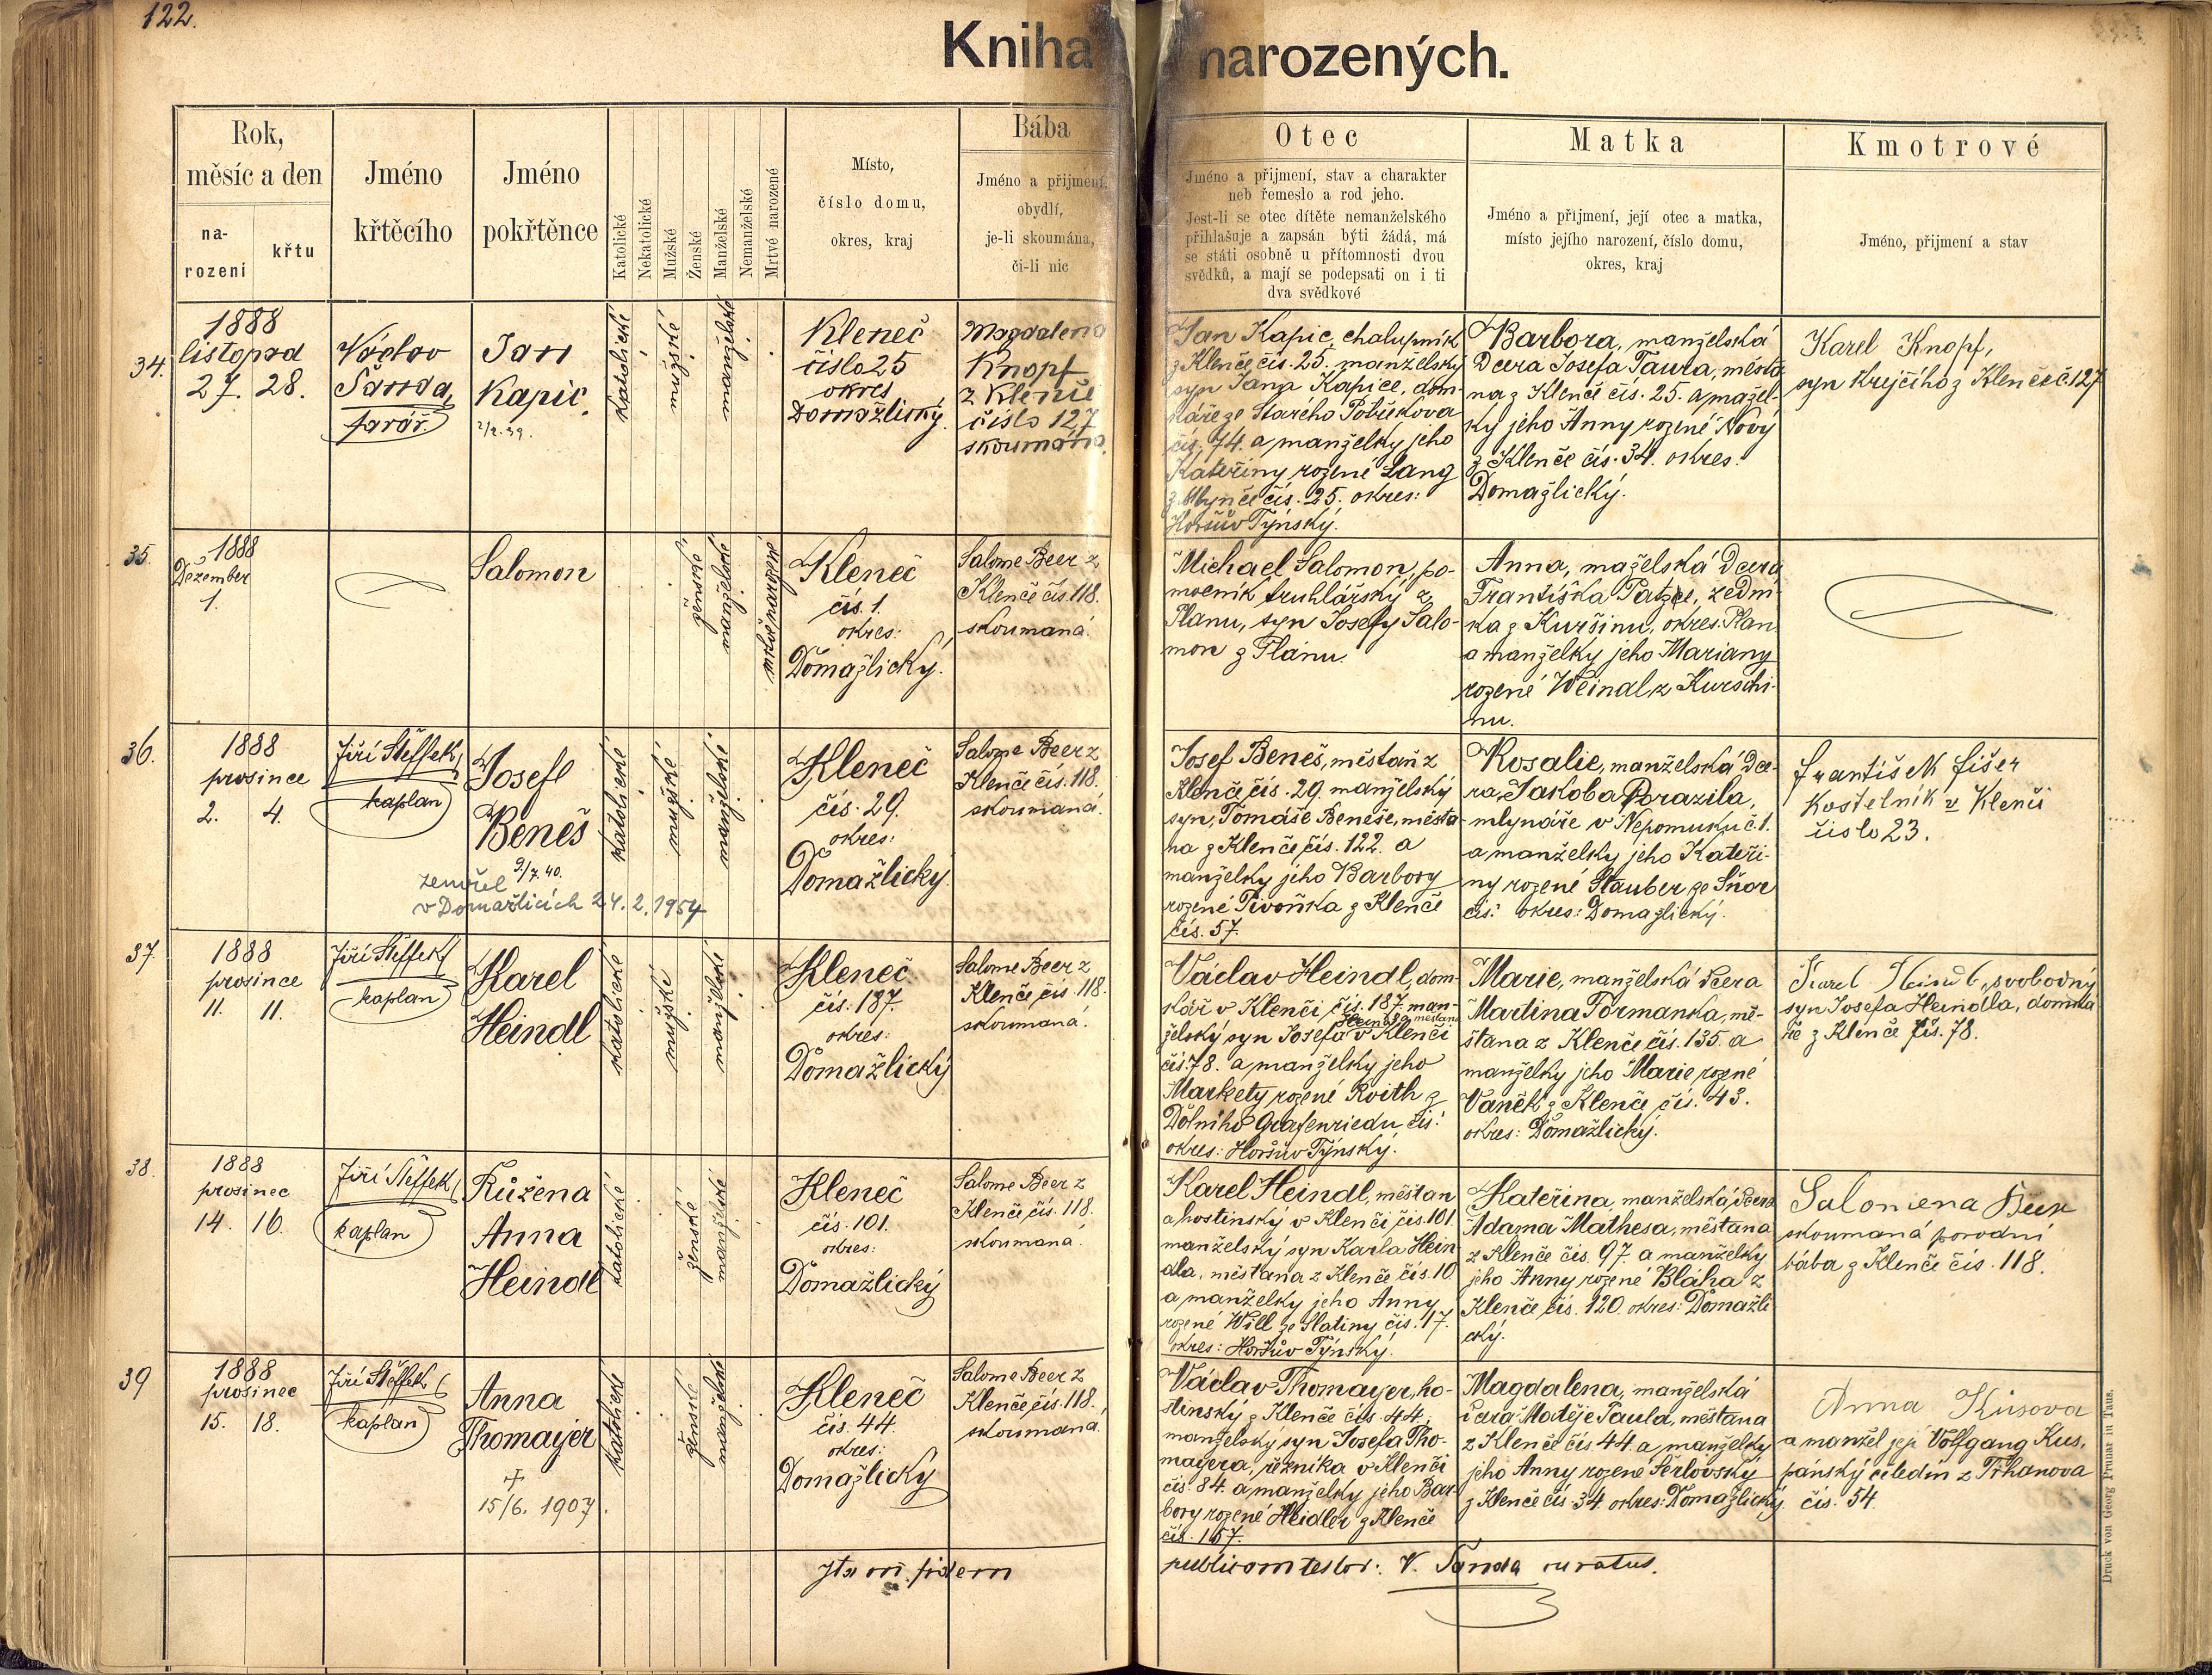 122.
Kniha narozených.
Rok,
měsíc a den
na-
rození
křtu
Jméno
křtěcího
Jméno
pokřtěnce
Katolické
Nekatolické
Mužské
Ženské
Manželské
Nemanželské
Mrtvé narozené
Místo,
číslo domu,
okres, kraj
Bába
Jméno a přijmení,
obydlí,
je-li skoumána,
či-li nic
Otec
Jméno a přijmení, stav a charakter
neb řemeslo a rod jeho.
Jest-li se otec dítěte nemanželského
přihlašuje a zapsán býti žádá, má
se státi osobně u přítomnosti dvou
svědků, a mají se podepsati on i ti
dva svědkové
Matka
Jméno a přijmení, její otec a matka,
místo jejího narození, číslo domu,
okres, kraj
Kmotrové
Jméno, přijmení a stav
34.
1888
listopad
27. 28.
Václav
Šanda,
farář.
Jan
Kapic.
katolické
mužské
manželské
Kleneč
číslo 25
okres
Domažlický.
Magdalena
Knopf
z Klenče
číslo 127
skoumána.
Jan Kapic, chalupník
z Klenče čís. 25. manželský
syn Jana Kapice, dom-
káře ze Starého Postřekova
čís. 74. a manželky jeho
Kateřiny rozené Lang
z Mlynče čís. 25. okres:
Horšův Týnský.
Barbora, manželská
dcera Josefa Taura, měšťa-
na z Klenče čís. 25. a manžel-
ky jeho Anny rozené Nový
z Klenče čís. 34. okres:
Domažlický.
Karel Knopf,
syn Krejčího z Klenče č. 127
35.
1888
Dezember
1.
Salomon
ženské
manželské
mrtvě narozené
Kleneč
čís. 1.
okres:
Domažlický.
Salome Beer z
Klenče čís. 118.
skoumaná.
Michael Salomon, po-
mocník truhlářský z
Planu, syn Josefy Salo-
mon z Planu.
Anna, manželská dcera
Františka Patzel, zední-
ka z Kuršinu, okres. Plan
a manželky jeho Mariany
rozené Weindl z Kurschi-
nu.
36.
1888
prosince
2. 4.
Jiří Šteffek,
kaplan
Josef
Beneš
9/7. 40.
zemřel
v Domažlicích 24. 2. 1954
katolické
mužské
manželské
Kleneč
čís. 29.
okres:
Domažlický
Salome Beer z
Klenče čís. 118.
skoumaná.
Josef Beneš, měštan z
Klenče čís. 29. manželský
syn Tomáše Beneše, měšta-
na z Klenče čís. 122. a
manželky jeho Barbory
rozené Pivoňka z Klenče
čís. 57.
Rosalie, manželská dce-
ra Jakoba Porazila,
mlynáře v Nepomuku č. 1.
a manželky jeho Kateři-
ny rozené Stauber ze Šnor
čís: okres: Domažlický.
František Fišer
Kostelník v Klenči
číslo 23.
37.
1888
prosince
11. 11.
Jiří Šteffek
kaplan
Karel
Heindl
katolické
mužské
manželské
Kleneč
čís. 187.
okres:
Domažlický
Salome Beer z
Klenče čís. 118.
skoumaná.
Václav Heindl, dom-
kář v Klenči čís. 187. man-
želský syn Josefa Heindla měštana v Klenči
čís. 78. a manželky jeho
Markety rozené Roith z
Dolního Grafenriedu čís:
okres: Horšův Týnský.
Marie, manželská dcera
Martina Formanka, mě-
štana z Klenče čís. 135. a
manželky jeho Marie rozené
Vaněk z Klenče čís. 43.
okres: Domažlický.
Karel Heindl, svobodný
syn Josefa Heindla, domká-
ře z Klenče čís. 78.
38.
1888
prosinec
14. 16.
Jiří Šteffek,
kaplan
Růžena
Anna
Heindl
katolické
ženské
manželské
Kleneč
čís. 101.
okres:
Domažlický
Salome Beer z
Klenče čís. 118.
skoumaná.
Karel Heindl, měštan
a hostinský v Klenči čís. 101.
manželský syn Karla Hein-
dla, měštana z Klenče čís. 10
a manželky jeho Anny
rozené Will ze Slatiny čís. 17.
okres: Horšův Týnský.
Kateřina, manželská dcera
Adama Mathesa, měštana
z Klenče čís. 97. a manželky
jeho Anny rozené Bláha z
Klenče čís. 120. okres: Domažli-
cký.
Salomena Beer
skoumaná porodní
bába z Klenče čís. 118.
39
1888
prosinec
15. 18.
Jiří Šteffek
kaplan
Anna
Thomayer
+
15/6. 1907.
katolické
ženské
manželské
Kleneč
čís. 44.
okres:
Domažlický
Salome Beer z
Klenče čís. 118.
skoumaná.
Václav Thomayer, ho-
stinský z Klenče čís. 44,
manželský syn Josefa Tho-
mayera, řezníka v Klenči
čís. 84. a manželky jeho Bar-
bory rozené Heidler z Klenče
čís. 157.
Magdalena, manželská
dcera Matěje Paula, měštana
z Klenče čís. 44. a manželky
jeho Anny rozené Šerlovský
z Klenče čís. 34. okres: Domažlický.
Anna Kusova
a manžel její Volfgang Kus,
pánský čeledín z Trhanova
čís. 54.
Ita in fidem
publicam testor: V. Šanda curatus.
Druck von Georg Prunar in Taus.